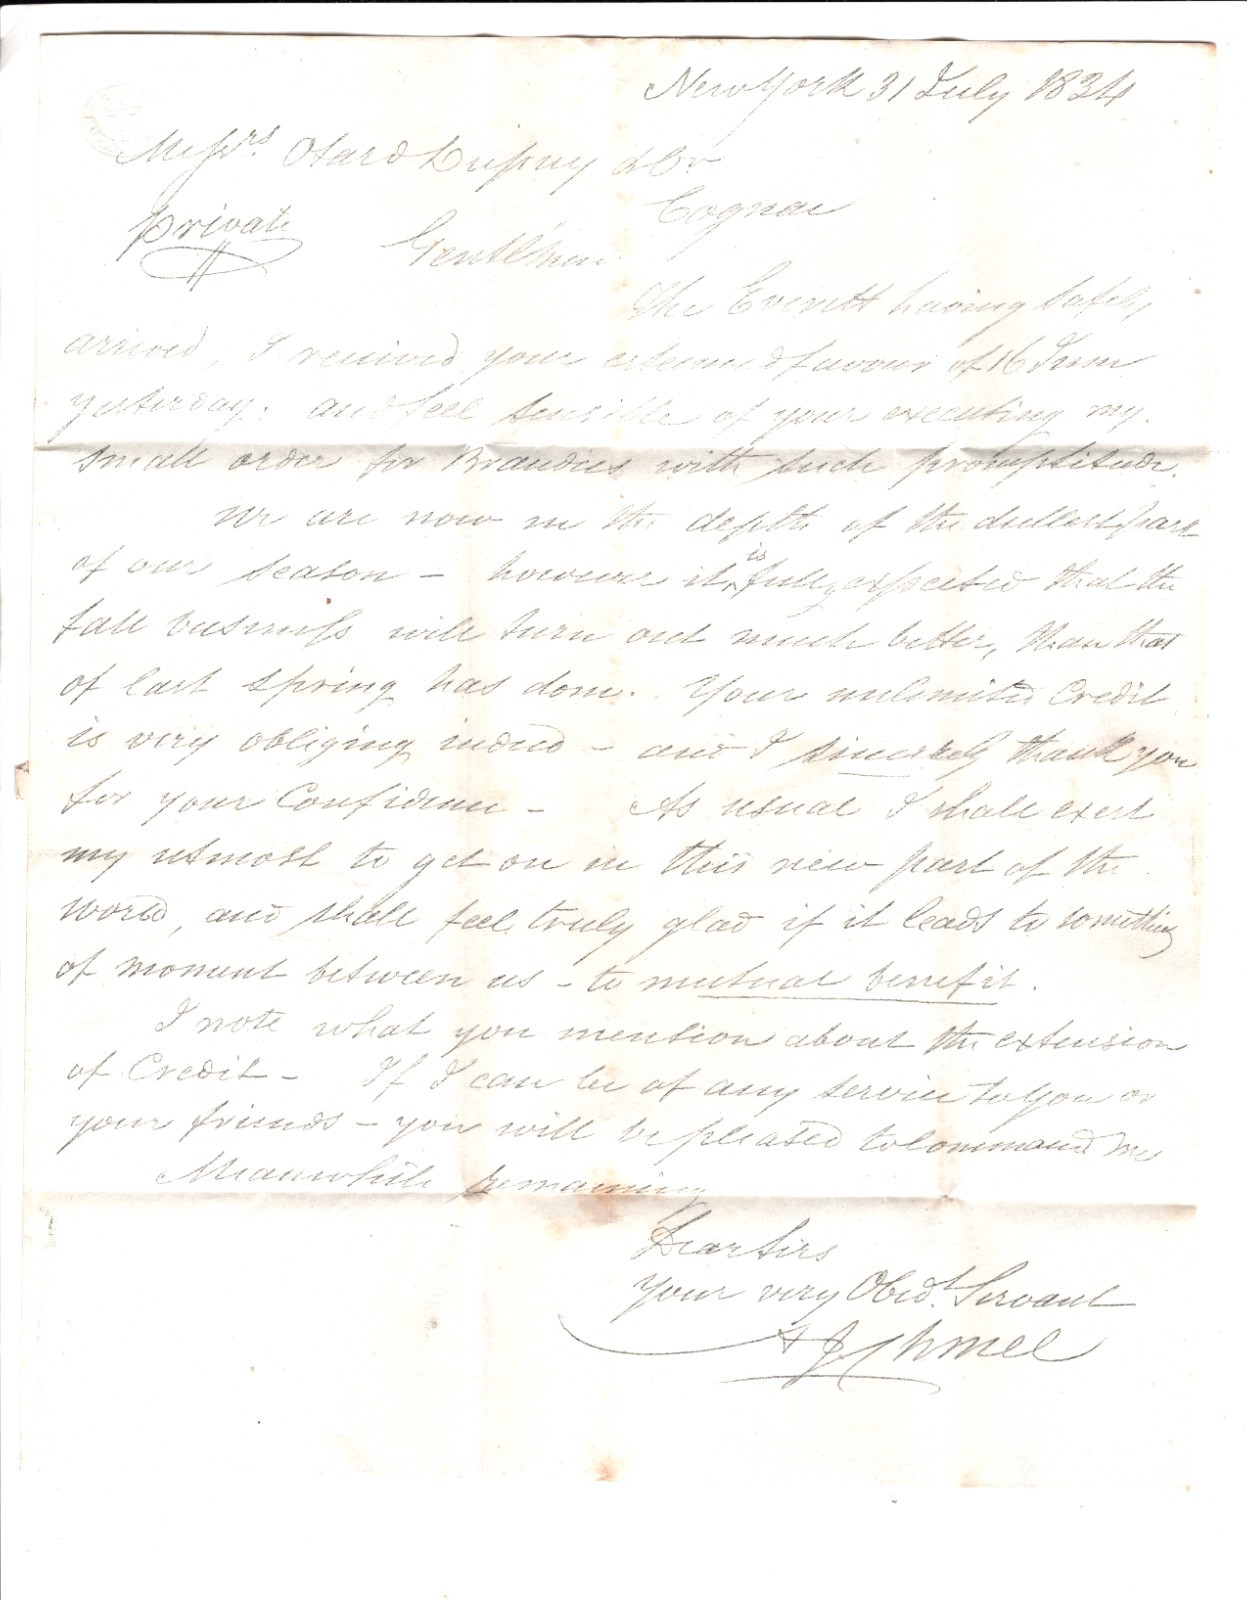 New York 31 July 1834
Messrs. Otard Dupuy & Co
Cognac
Private
Gentlemen
The Everett having safely
arrived, I received your esteemed favour of 16 June
yesterday. and feel sensible of your executing my
small order for Brandies with such promptitude.
We are now in the depth of the dullest part
of our season – however it is fully expected that the
fall business will turn out much better, than that
of last spring has done. Your unlimited Credit
is very obliging indeed – and I sincerely thank you
for your Confidence – As usual I shall exert
my utmost to get on in this new part of the
world, and shall feel truly glad if it leads to something
of moment between us – to mutual benefit.
I note what you mention about the extension
of Credit – If I can be of any service to you or
your friends – you will be pleased to Command me
Meanwhile remaining
Dear Sirs
Your very Obedt. Servant